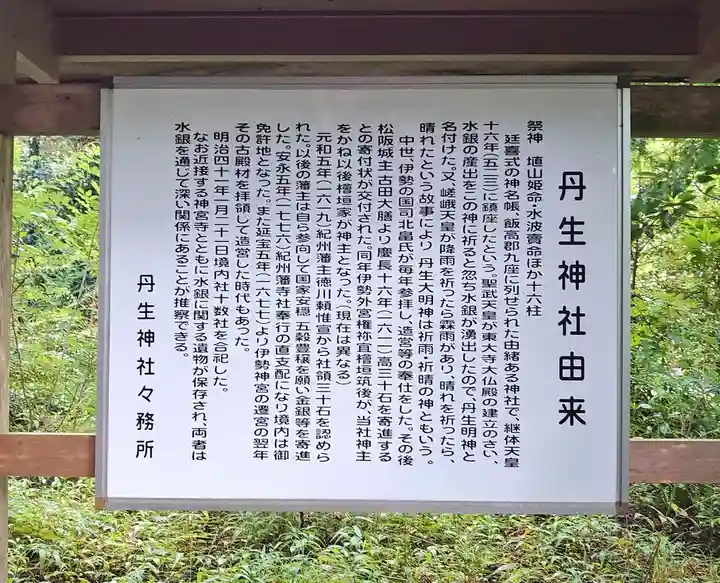 丹生神社由来
祭神　埴山姫命・水波賣命ほか十六柱
廷喜式の神名帳、飯高郡九座に列せられた由緒ある神社で、継体天皇
十六年(五二三)に鎮座したという。聖武天皇が東大寺大仏殿の建立のさい、
水銀の産出をこの神に祈ると忽ち水銀が湧出したので、丹生明神と
名付けた。又、嵯峨天皇が降雨を祈ったら霖雨があり、晴れを祈ったら、
晴れたという故事により、丹生大明神は祈雨・祈晴の神ともいう。
中世、伊勢の国司北畠氏が毎年参拝し、造営等の奉仕をした。その後
松阪城主古田大膳より慶長十六年(一六一一)高三十石を寄進する
との寄付状が交付された。同年伊勢外宮権祢宜檜垣筑後が、当社神主
をかね以後檜垣家が神主となった。(現在は異なる)
元和五年(一六一九)紀州藩主徳川頼惟宣から社領三十石を認めら
れた。以後の藩主は自ら参向して国家安穏、五穀豊穣を願い金銀等を寄進
した。安永五年(一七七六)紀州藩寺社奉行の直支配になり境内は御
免許地となった。また延宝五年(一六七七)より伊勢神宮の遷宮の翌年
その古殿材を拝領して造営した時代もあった。
明治四十一年一月二十二日境内社十数社を合祀した。
なお近接する神宮寺とともに水銀に関する遺物が保存され、両者は
水銀を通じて深い関係にあることが推察できる。
丹生神社々務所